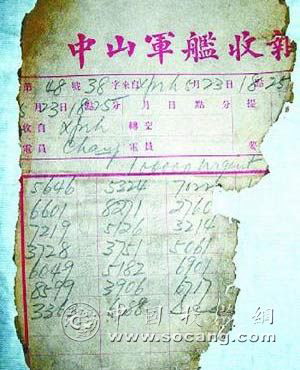 中山軍艦收報
第 48 號 38 字 來自 Xpnh 5月23日18點25
5月23日18點25分 月 日 點 分 提
收自 Xpnh 轉至
電員 Chays 電員 要
Urgent
5646 5324
6601 8271 2760
7219 5126 3214
3728 3751 5061
6049 5182 6901
8599 3906 6717
中国收藏网
www.socang.com